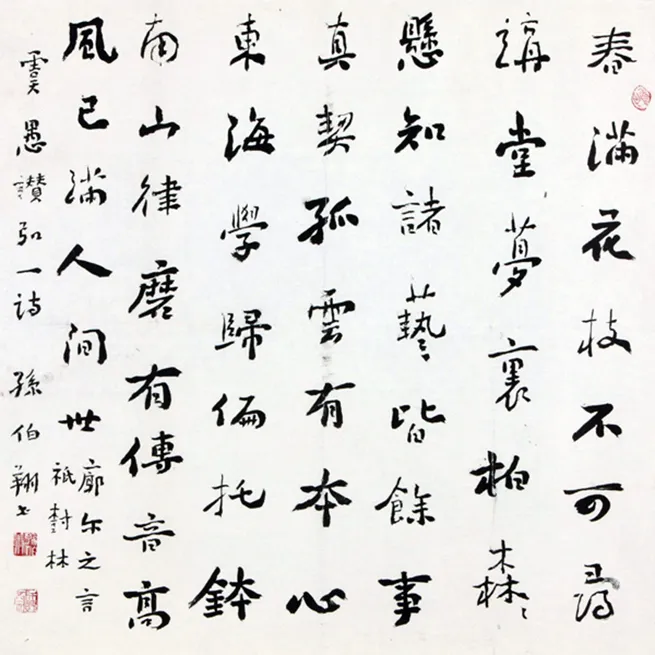 春滿花枝不可尋
講堂夢裏柏森〻
懸知諸藝皆餘事
真契孤雲有本心
東海學歸偏托鉢
南山律磨有傳音高
風已滿人間世
廓尔之言
祇對林
虞愚讚弘一诗 孫伯翔书